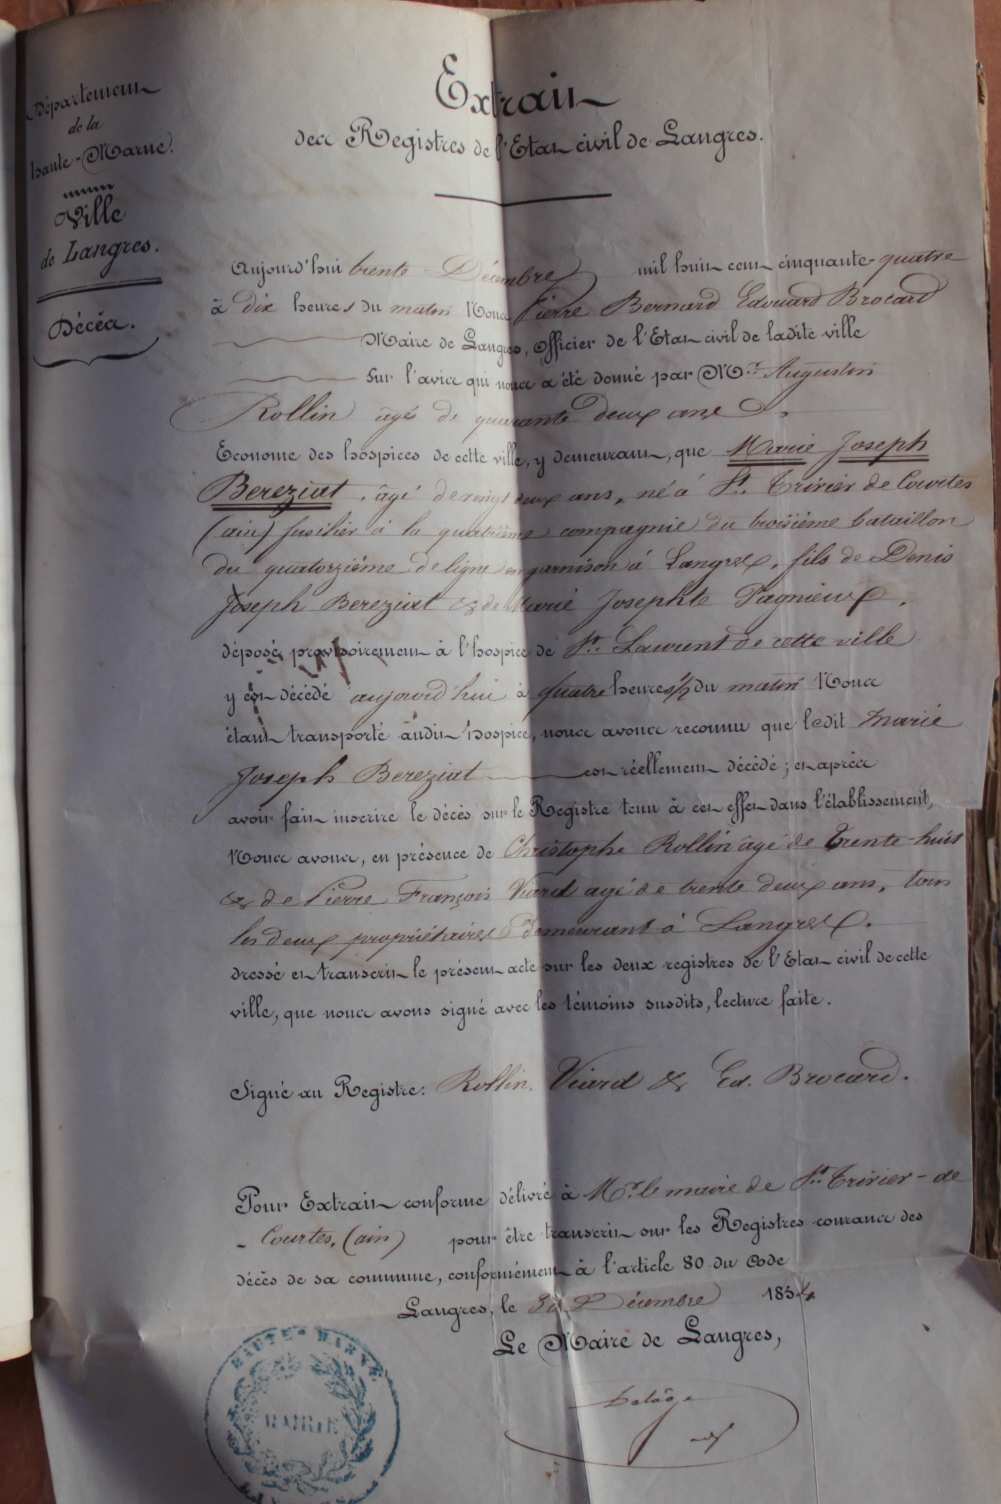 Département
de la
Haute-Marne.
Ville
de Langres.
Décès.
Extrait
des Registres de l'Etat civil de Langres.
Aujourd'hui trente Décembre mil huit cent cinquante-quatre
à dix heures du matin Nous Pierre Bernard Edouard Brocard
Maire de Langres, Officier de l'Etat civil de ladite ville
sur l'avis qui nous a été donné par Mr. Augustin
Rollin âgé de quarante deux ans
Econome des hospices de cette ville, y demeurant, que Marie Joseph
Bereziat, âgé de vingt deux ans, né à St. Trivier de Courtes
(ain) fusilier à la quatrième compagnie du troisième bataillon
du quatorzième de ligne en garnison à Langres, fils de Denis
Joseph Bereziat & de Marie Josephte Pagnieux.
déposé provisoirement à l'hospice de St. Laurent de cette ville
y est décédé aujourd'hui à quatre heures ½ du matin Nous
étant transporté audit hospice, nous avons reconnu que ledit Marie
Joseph Bereziat est réellement décédé; et après
avoir fait inscrire le décès sur le Registre tenu à cet effet dans l'établissement,
Nous avons, en présence de Christophe Rollin âgé de trente-huit
& de Pierre François Viard agé de trente deux ans, tous
les deux propriétaires demeurant à Langres.
dressé et transcrit le présent acte sur les deux registres de l'Etat civil de cette
ville, que nous avons signé avec les témoins susdits, lecture faite.
Signé au Registre: Rollin. Viard & Ed. Brocard.
Pour Extrait conforme délivré à Mr. le maire de St. Trivier-de
- Courtes, (ain) pour être transcrit sur les Registres courants des
décès de sa commune, conformément à l'article 80 du Code
Langres, le 30 Décembre 1854
Le Maire de Langres,
HAUTE-MARNE
MAIRIE